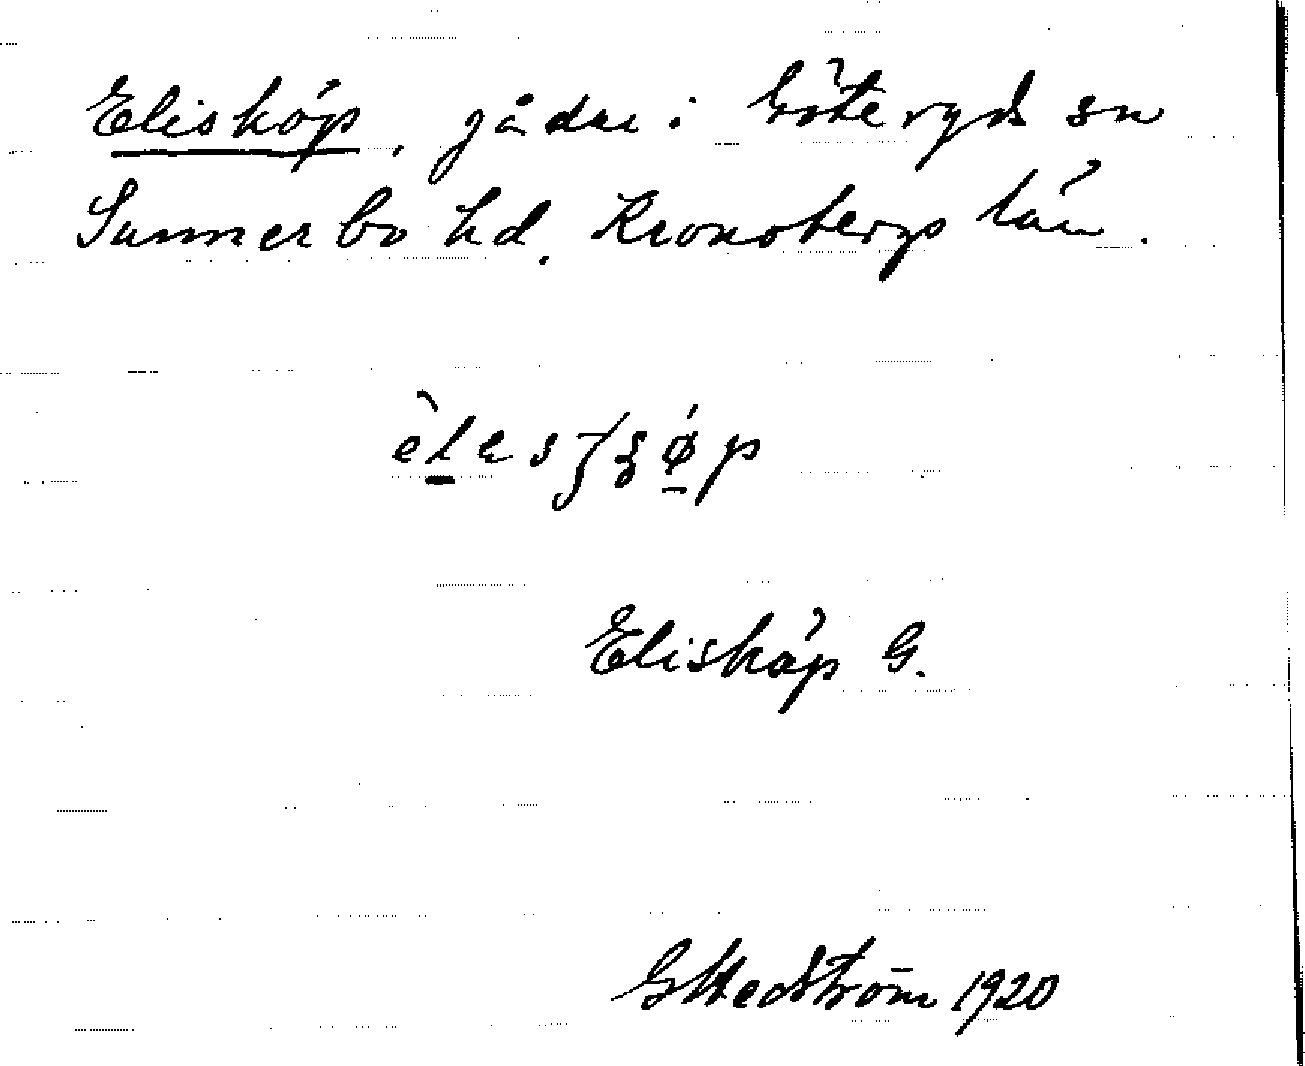 Elisköp, gårdar i Göteryds sn
Sunnerbo hd. Kronobergs län.
Elisköp G.
G Hedström 1920